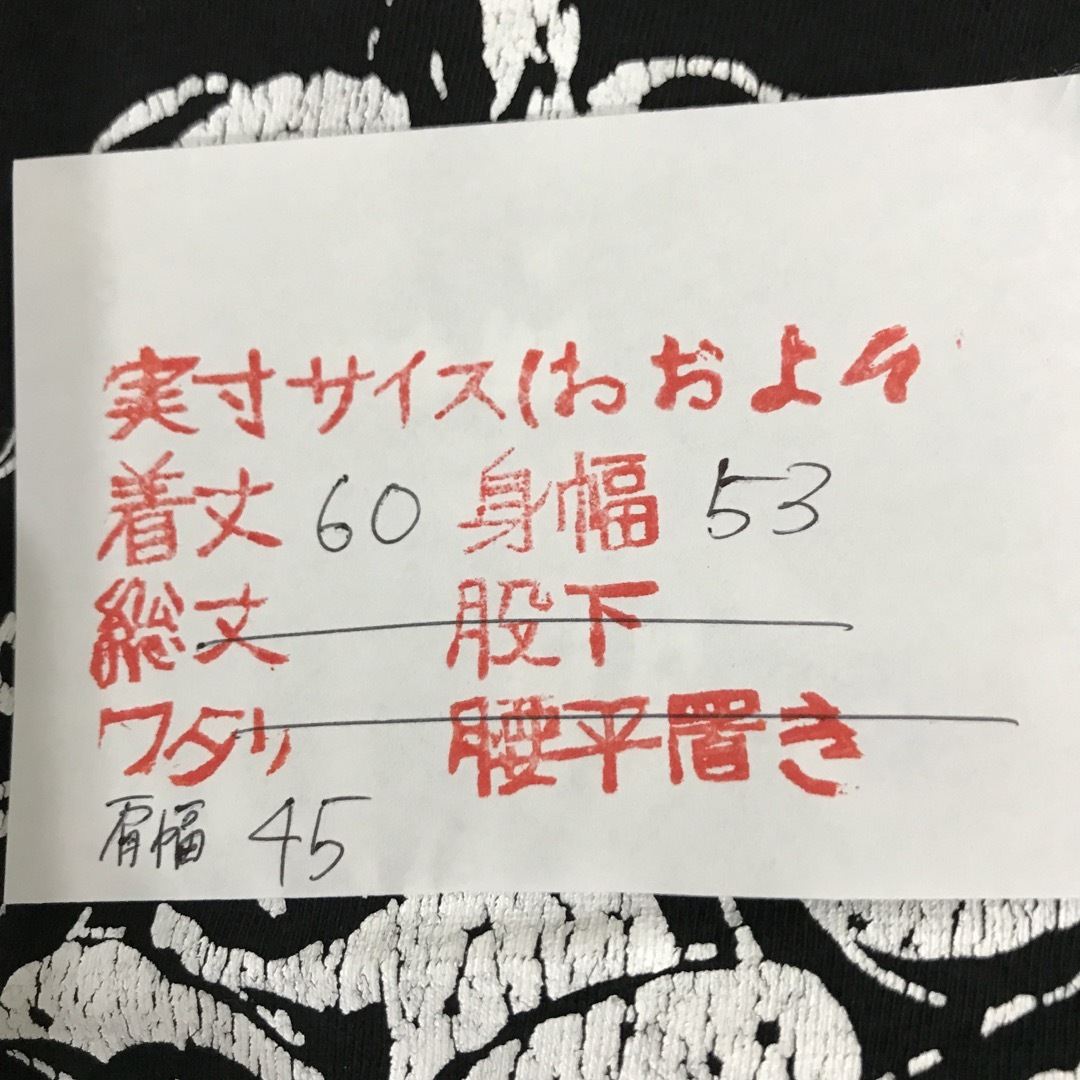 実寸サイズ(おおよそ
着丈 60 身幅 53
総丈 股下
ワタリ 腰平置き
肩幅 45